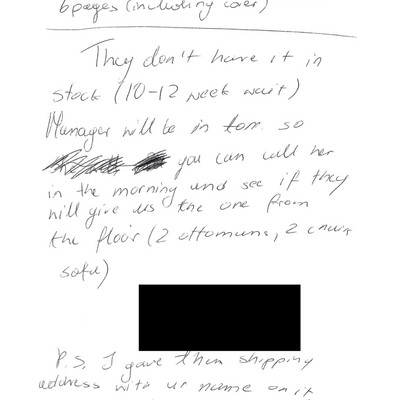 6 pages (including cover)
They don't have it in
stock (10-12 week wait)
Manager will be in tom. so
you can call her
in the morning and see if they
will give us the one from
the floor (2 ottomans, 2 chair
sofa)
P.S. I gave them shipping
address with ur name on it.